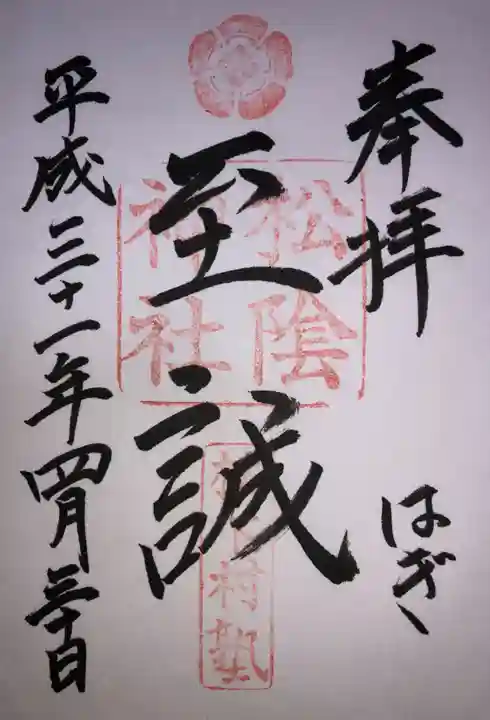 奉拝
はぎ
松陰
神社
至誠
松下村塾
平成三十一年四月三十日